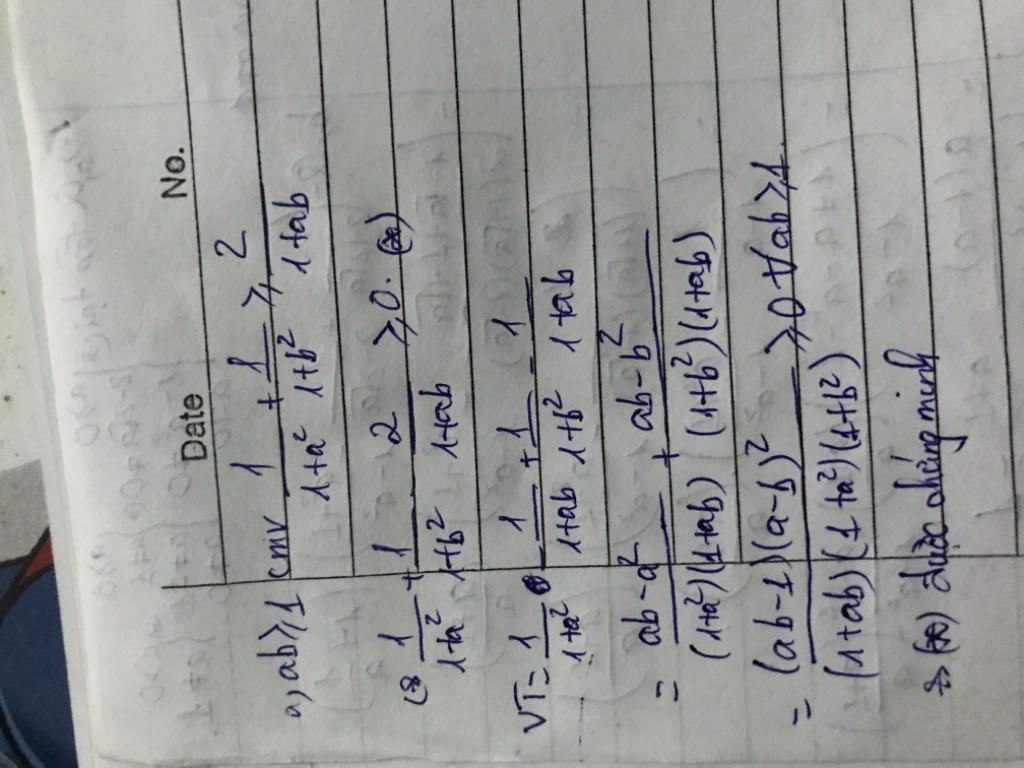 Date No.
a, ab ≥ 1 cmr 1/(1+a²) + 1/(1+b²) ≥ 2/(1+ab)
(=) 1/(1+a²) + 1/(1+b²) - 2/(1+ab) ≥ 0. (*)
VT = 1/(1+a²) - 1/(1+ab) + 1/(1+b²) - 1/(1+ab)
= (ab-a²)/((1+a²)(1+ab)) + (ab-b²)/((1+b²)(1+ab))
= (ab-1)(a-b)²/((1+ab)(1+a²)(1+b²)) ≥ 0 ∀ab ≥ 1
=> (*) được chứng minh